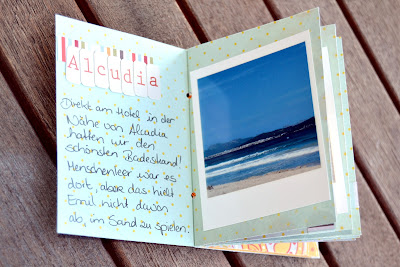 Alcudia
Direkt am Hotel in der
Nähe von Alcudia
hatten wir den
schönsten Badestrand!
Menschenleer war es
dort, aber das hielt
Emil nicht davon
ab, im Sand zu spielen.